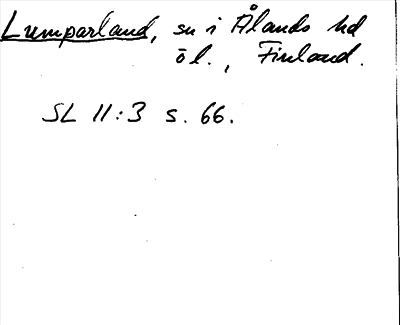 Lumparland, sn i Ålands hd
öl., Finland.
SL 11:3 s. 66.